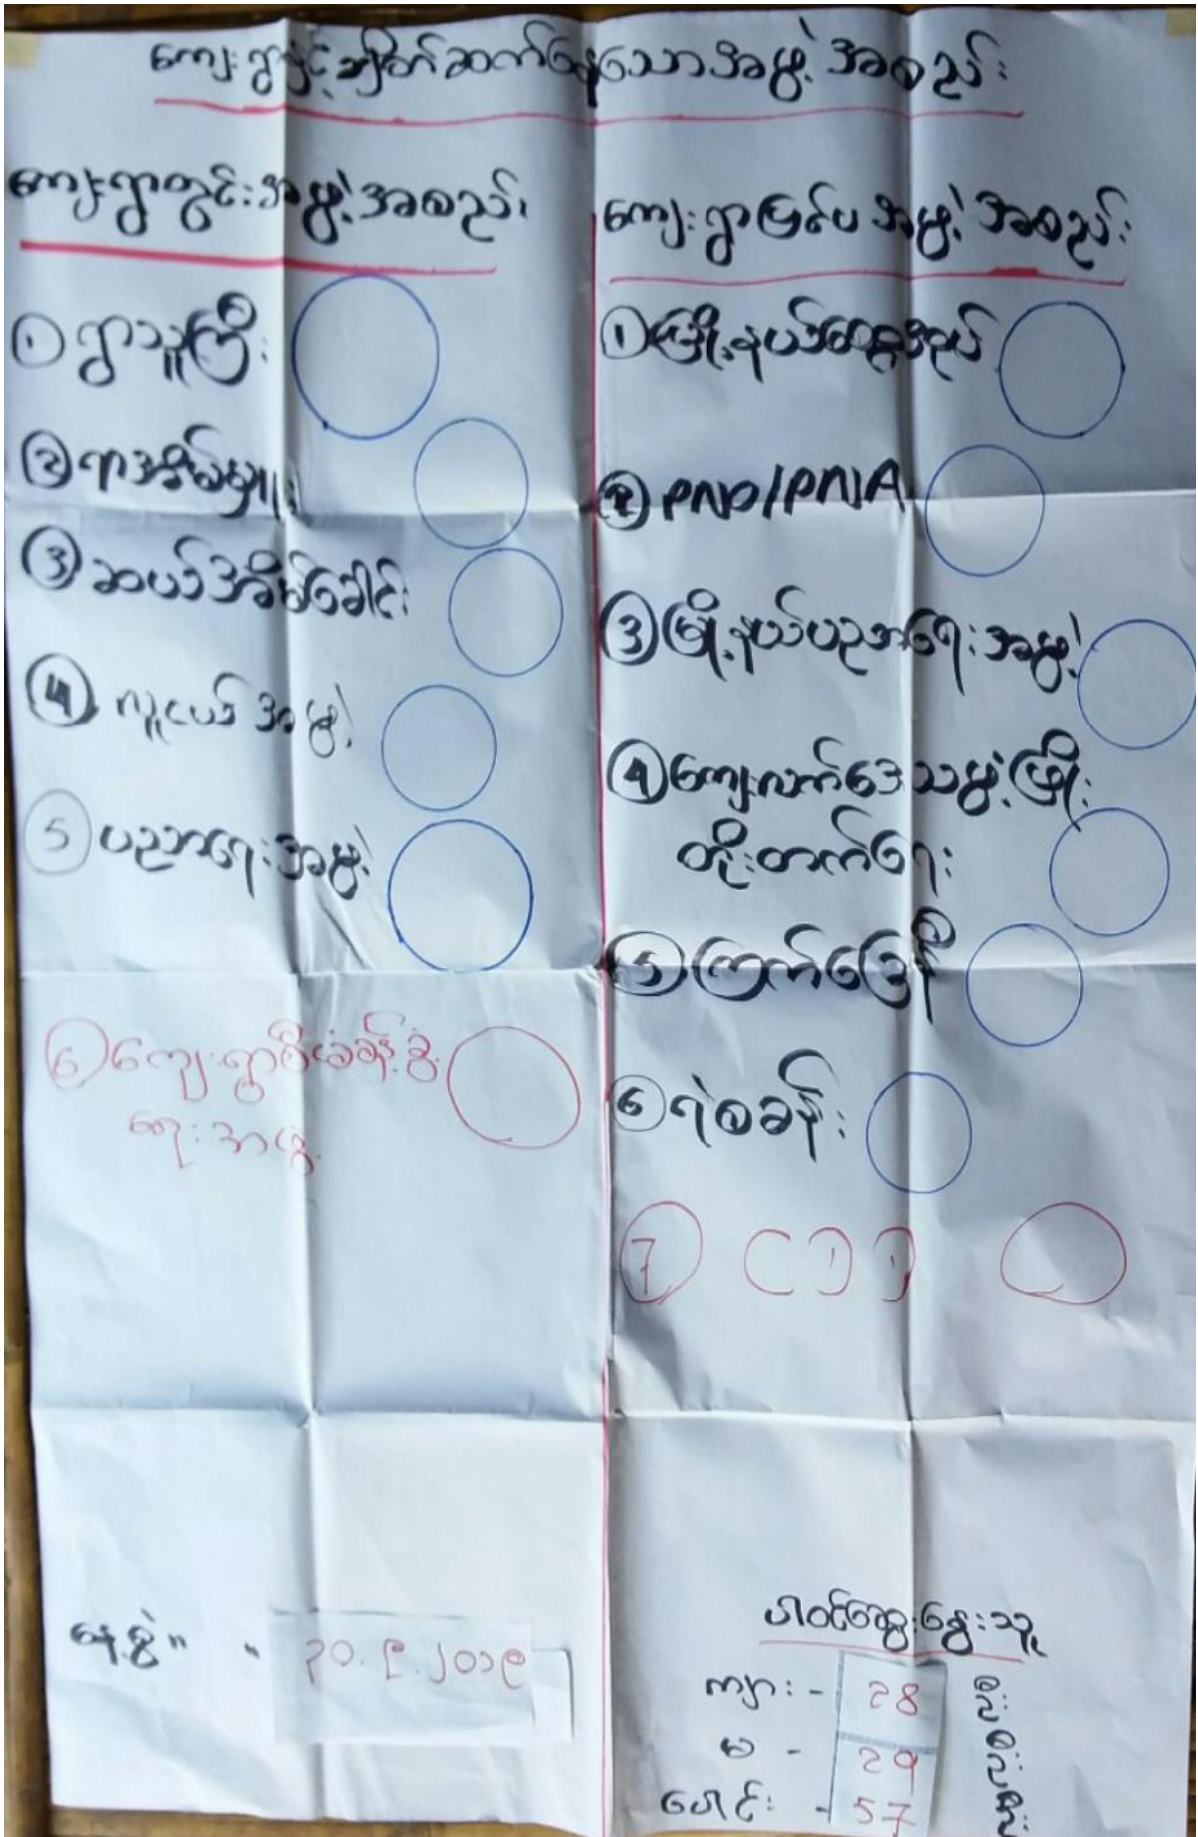 ကျေးရွာနှင့်ချိတ်ဆက်နေသောအဖွဲ့အစည်း
ကျေးရွာတွင်းအဖွဲ့အစည်း
① ရွာသူကြီး
② ရာအိမ်မှူး
③ ဆယ်အိမ်ခေါင်း
④ လူငယ်အဖွဲ့
5 ပညာရေးအဖွဲ့
6 ကျေးရွာစီမံခန့်ခွဲ
ရေးအဖွဲ့
ကျေးရွာပြင်ပအဖွဲ့အစည်း
① မြို့နယ်
② PNO/PNA
③ မြို့နယ်ပညာရေးအဖွဲ့
④ ကျေးလက်ဒေသဖွံ့ဖြိုး
တိုးတက်ရေး
⑤ ကြက်ခြေနီ
6 ရဲစခန်း
7
နေ့စွဲ" - ၃၀.၉.၂၀၁၉
ပါဝင်ဆွေးနွေးသူ
ကျား - 28
မ - 29
ပေါင်း - 57